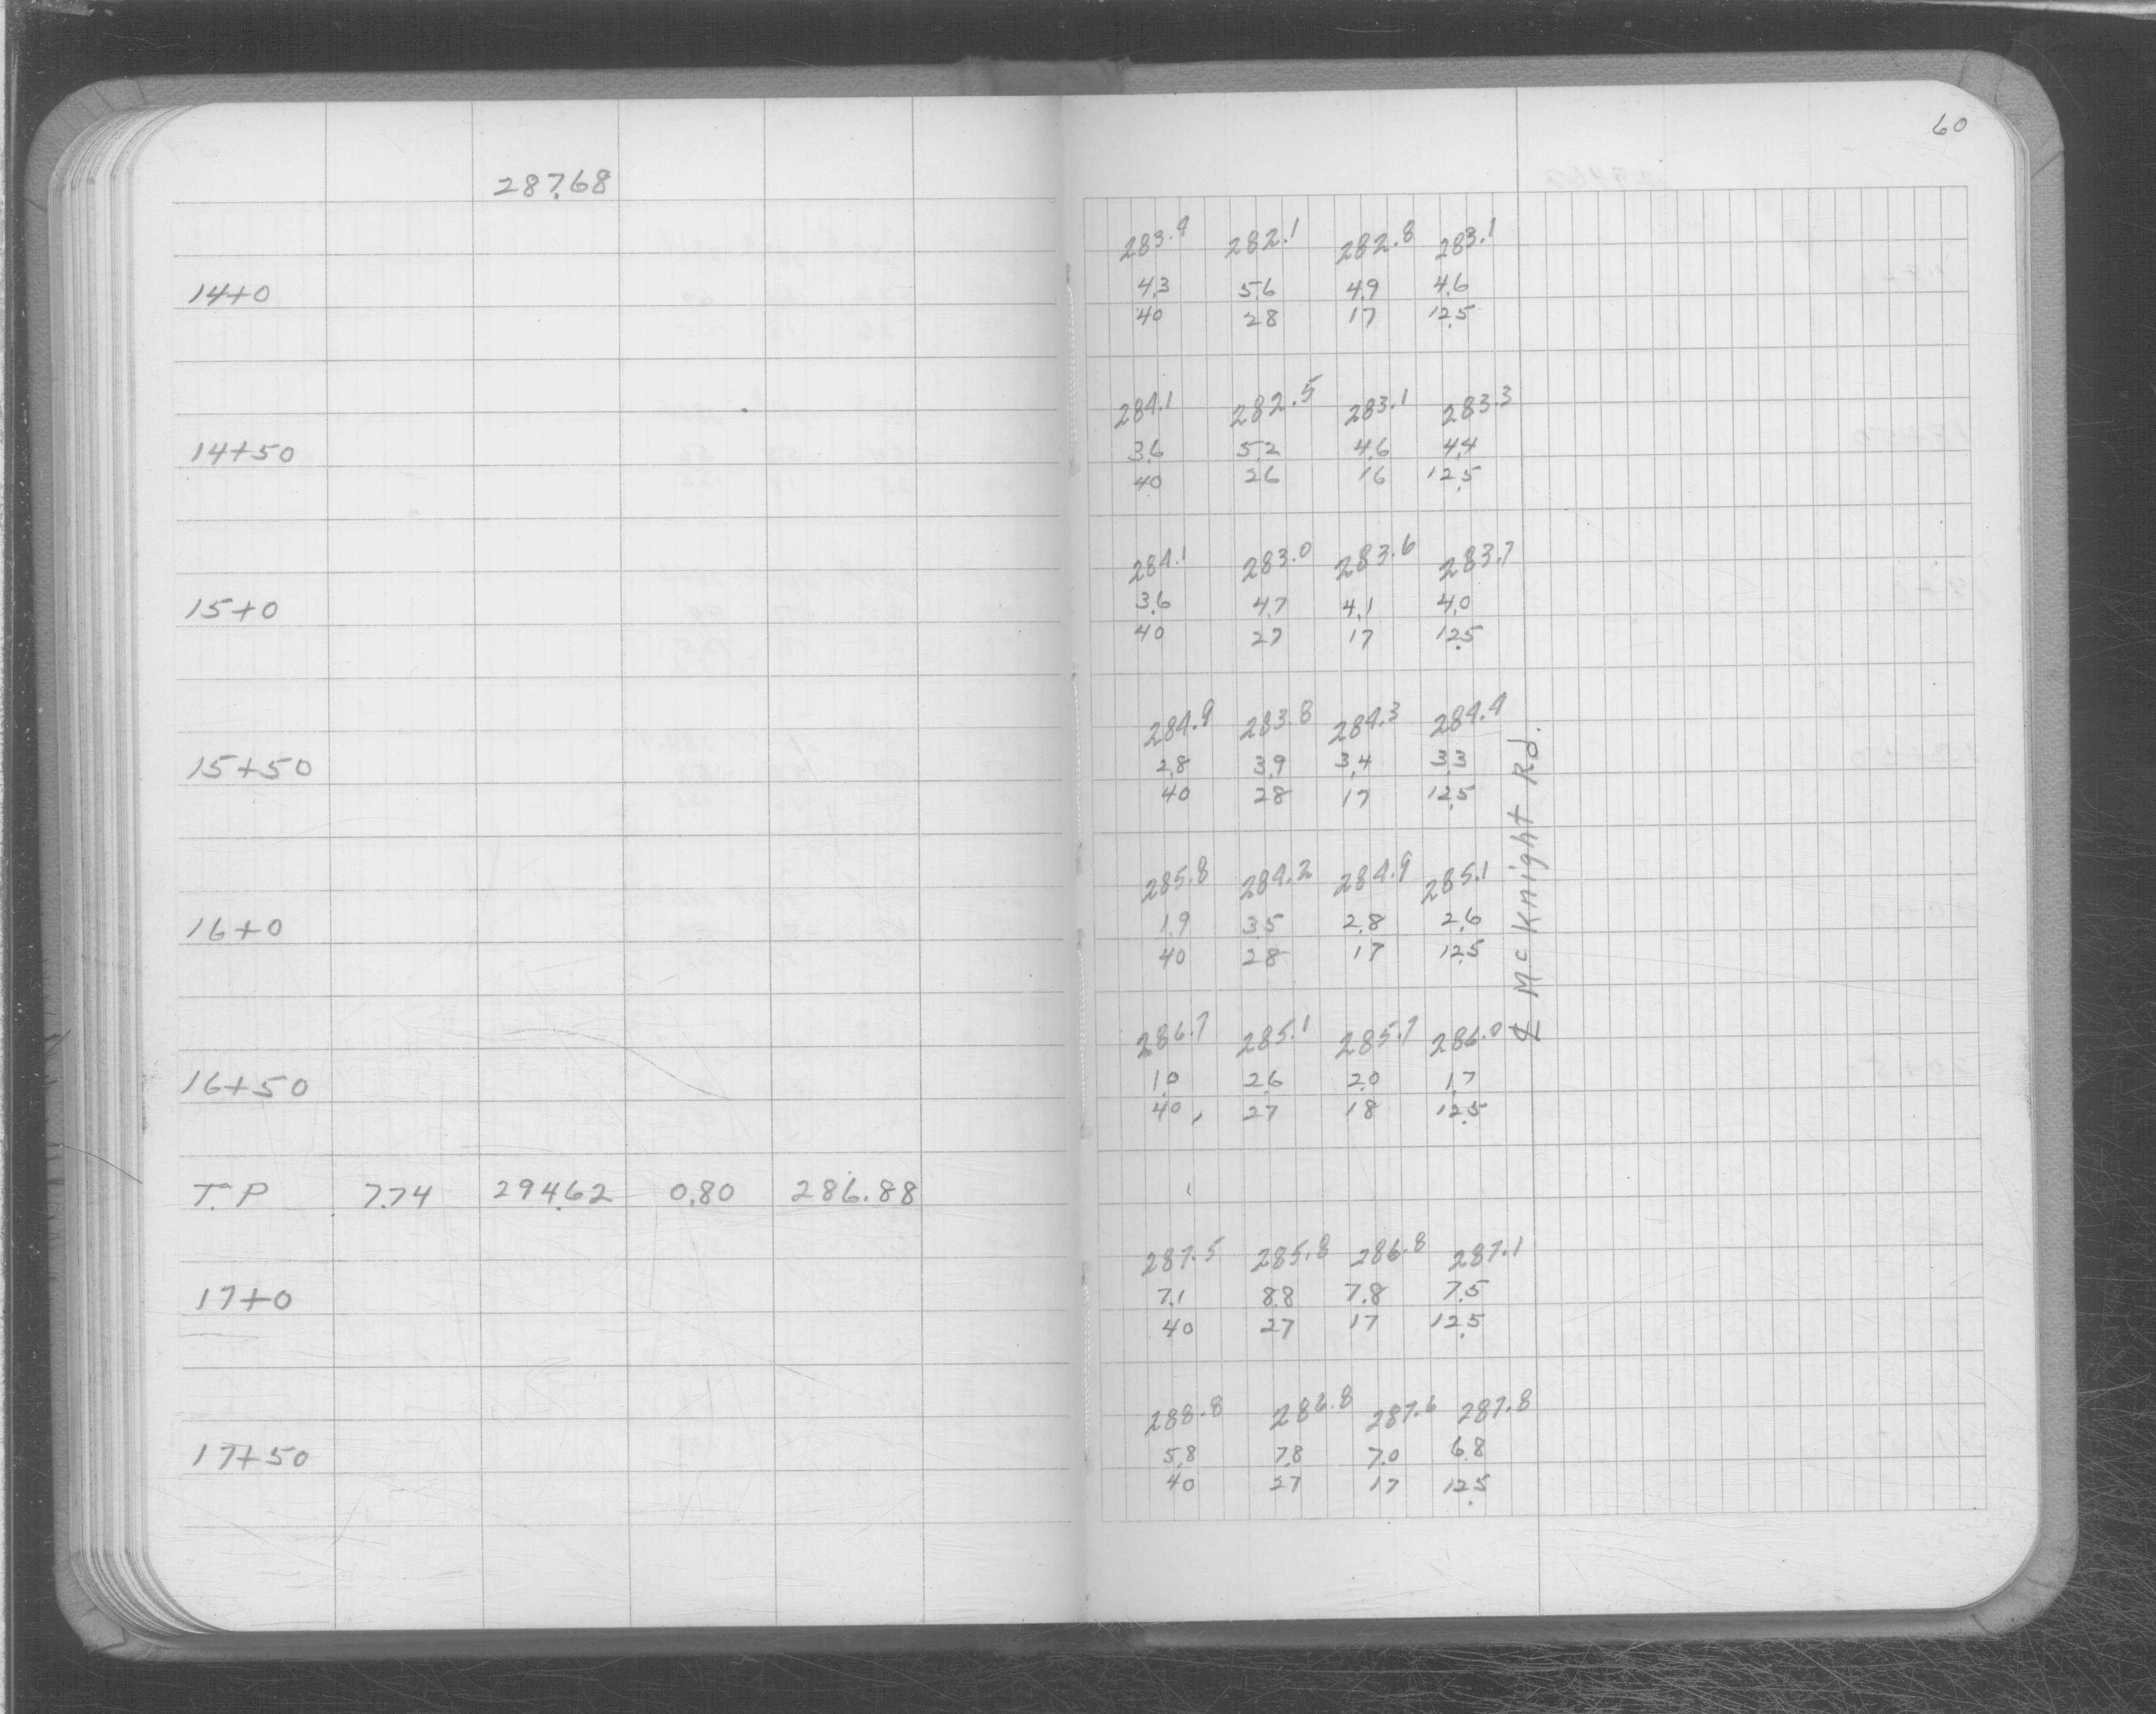 60
287.68
283.4 282.1 282.8 283.1
14+0 4.3 5.6 4.9 4.6
40 28 17 12.5
284.1 282.5 283.1 283.3
14+50 3.6 5.2 4.6 4.4
40 26 16 12.5
284.1 283.0 283.6 283.7
15+0 3.6 4.7 4.1 4.0
40 27 17 12.5
284.9 283.8 284.3 284.4
15+50 2.8 3.9 3.4 3.3
40 28 17 12.5
285.8 284.2 284.9 285.1
16+0 1.9 3.5 2.8 2.6
40 28 17 12.5
℄ McKnight Rd.
286.7 285.1 285.7 286.0
16+50 1.0 2.6 2.0 1.7
40 27 18 12.5
T.P 7.74 294.62 0.80 286.88
287.5 285.8 286.8 287.1
17+0 7.1 8.8 7.8 7.5
40 27 17 12.5
288.8 286.8 287.6 287.8
17+50 5.8 7.8 7.0 6.8
40 27 17 12.5